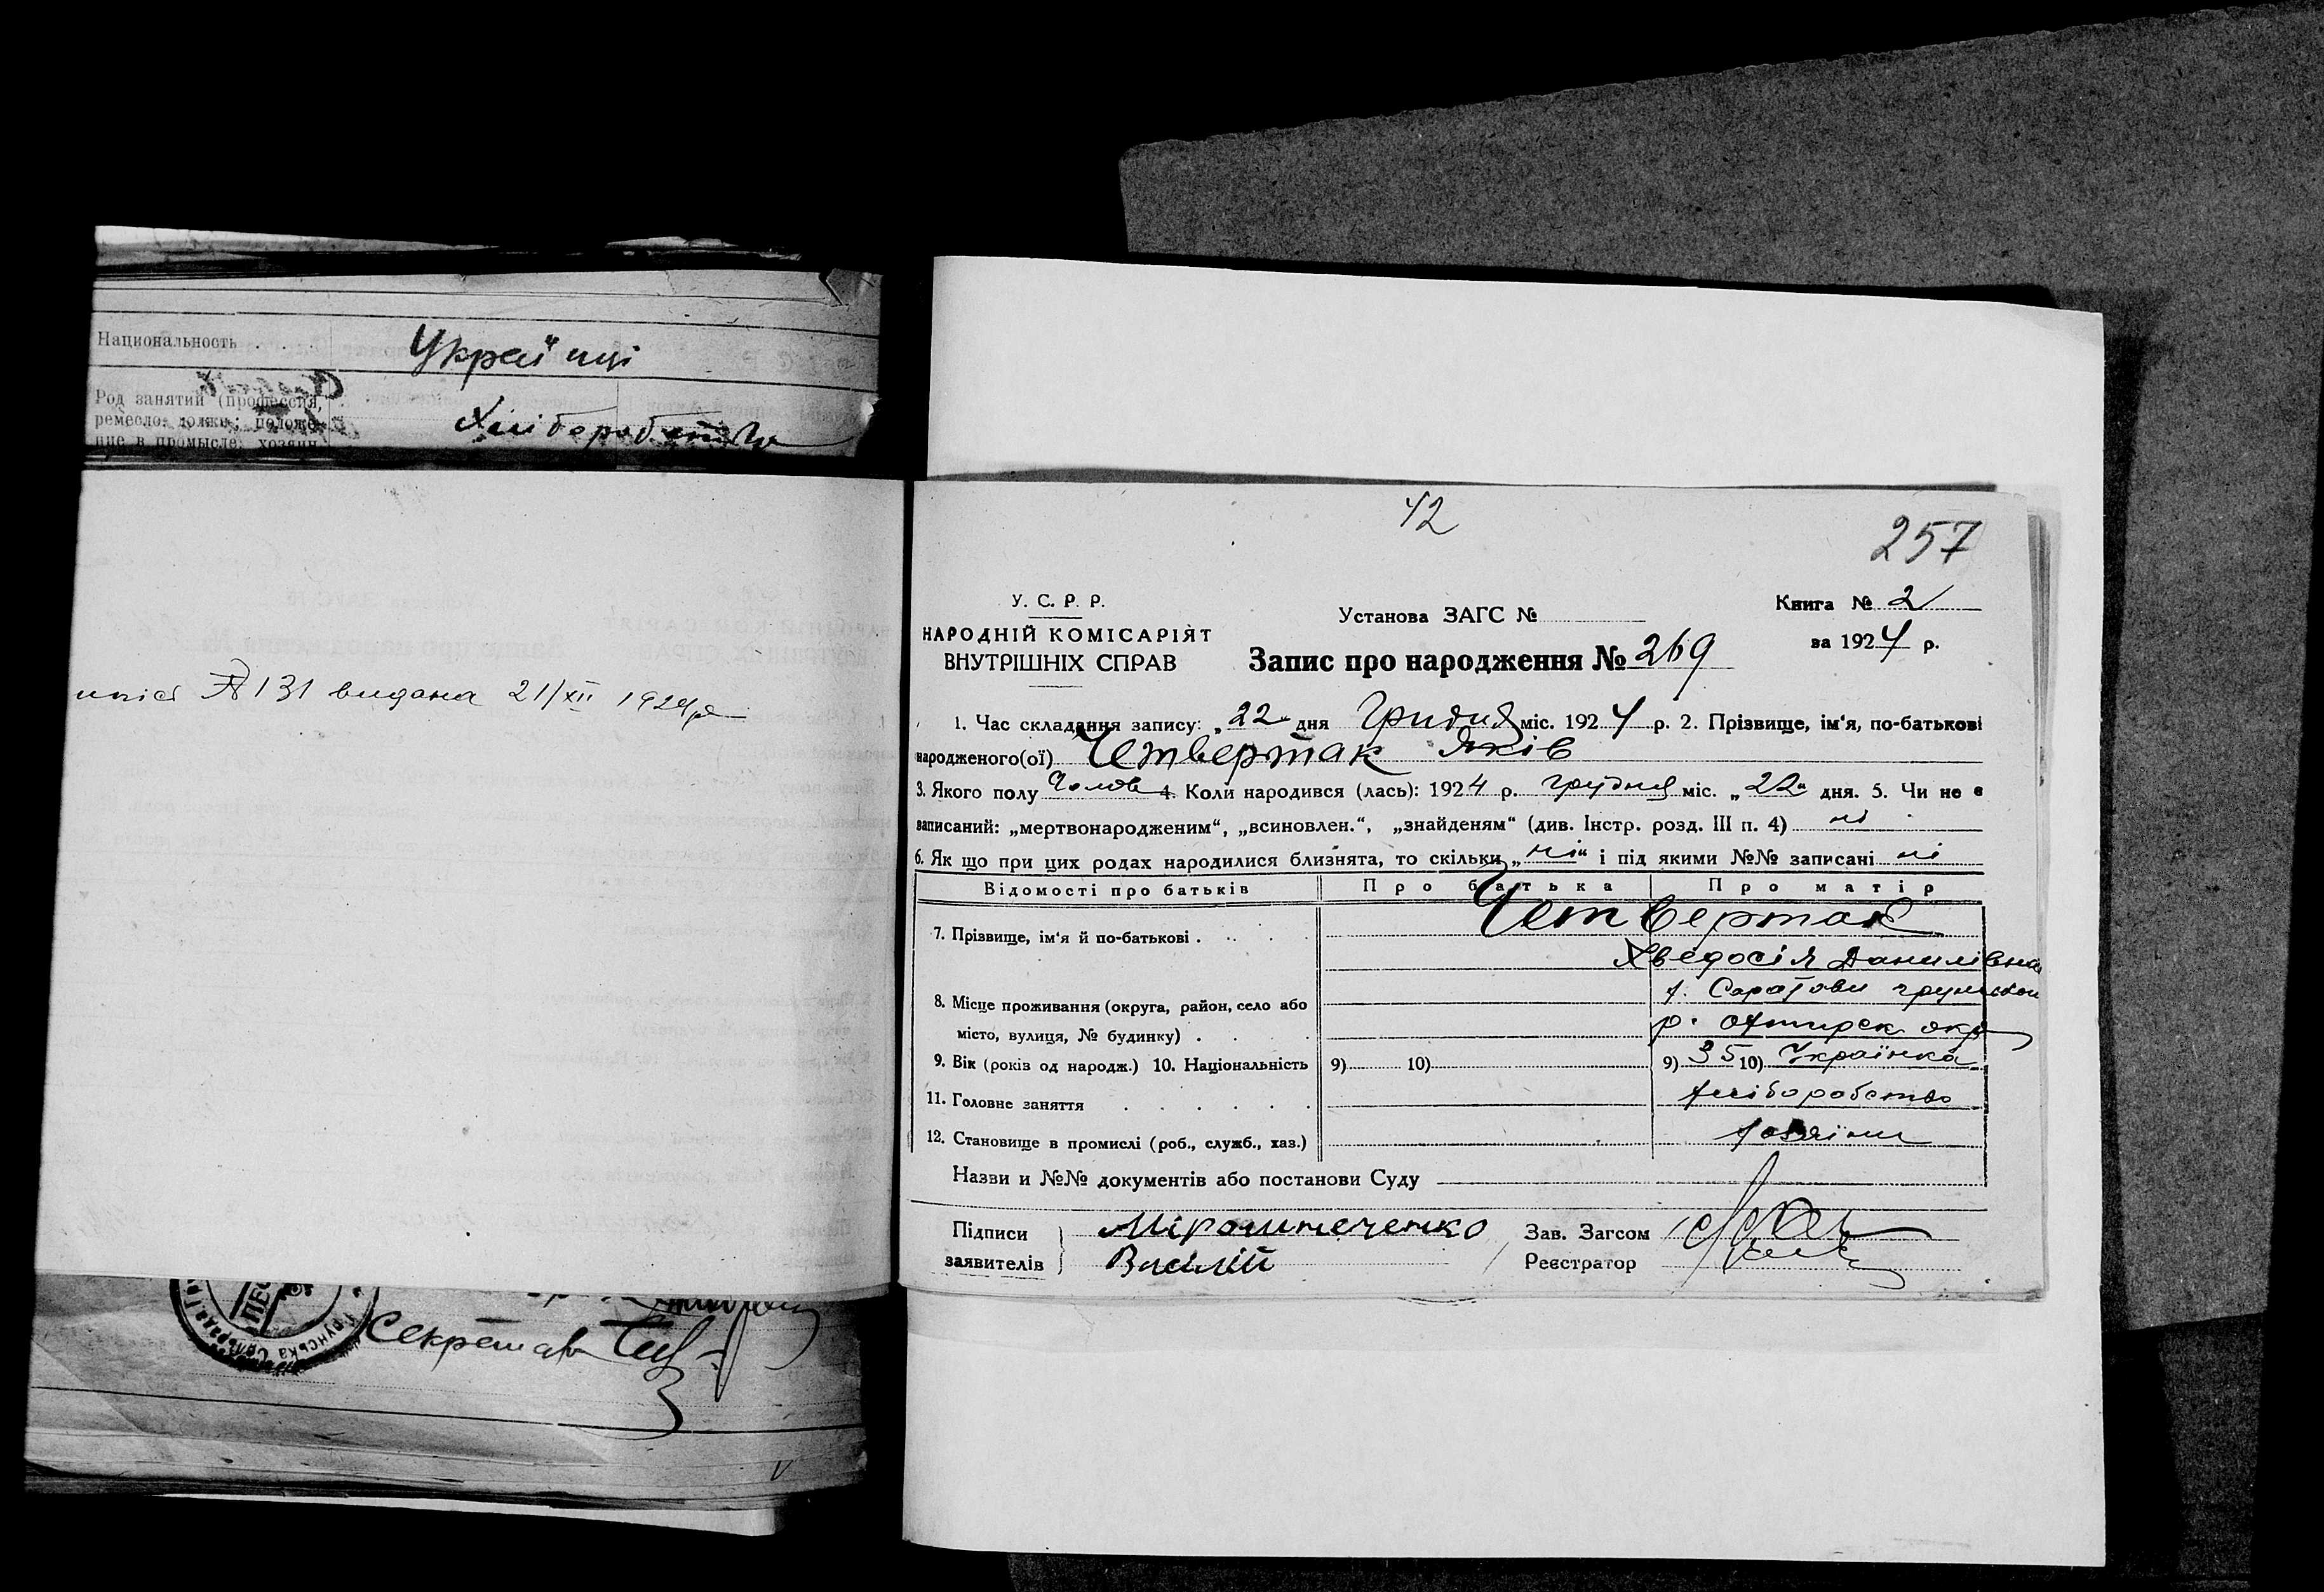 Национальность . . . Україnці
Род занятий (профессия,
ремесло, должн; положе-
ние в промысле: хозяин
Хліборобство
копія № 131 видана 21/XII 1924 р
Секретар
42
257
У. С. Р. Р.
НАРОДНІЙ КОМІСАРІЯТ
ВНУТРІШНІХ СПРАВ
Установа ЗАГС №
Запис про народження № 269
Книга № 2
за 1924 р.
1. Час складання запису: „22" дня Грудня міс. 1924 р. 2. Прізвище, ім'я, по-батькові
народженого(ої) Четвертак Яків
3. Якого полу Чолов 4. Коли народився (лась): 1924 р. грудня міс. „22" дня. 5. Чи не є
записаний: „мертвонародженим", „всиновлен.", „знайденям" (див. Інстр. розд. III п. 4) ні
6. Як що при цих родах народилися близнята, то скільки „ні" і під якими №№ записані ні
Відомості про батьків Про батька Про матір
7. Прізвище, ім'я й по-батькові . . . . Четвертак
Хведосія Данилівна
8. Місце проживання (округа, район, село або
місто, вулиця, № будинку) . . . .
х. Саратови грунськой
р. Охтирск окр
9. Вік (років од народж.) 10. Національність 9) 10) 9) 35 10) Українка
11. Головне заняття . . . . . . хліборобство
12. Становище в промислі (роб., служб., хаз.) хозяїни
Назви и №№ документів або постанови Суду
Підписи
заявителів
Мірошнеченко
Василій
Зав. Загсом
Реєстратор